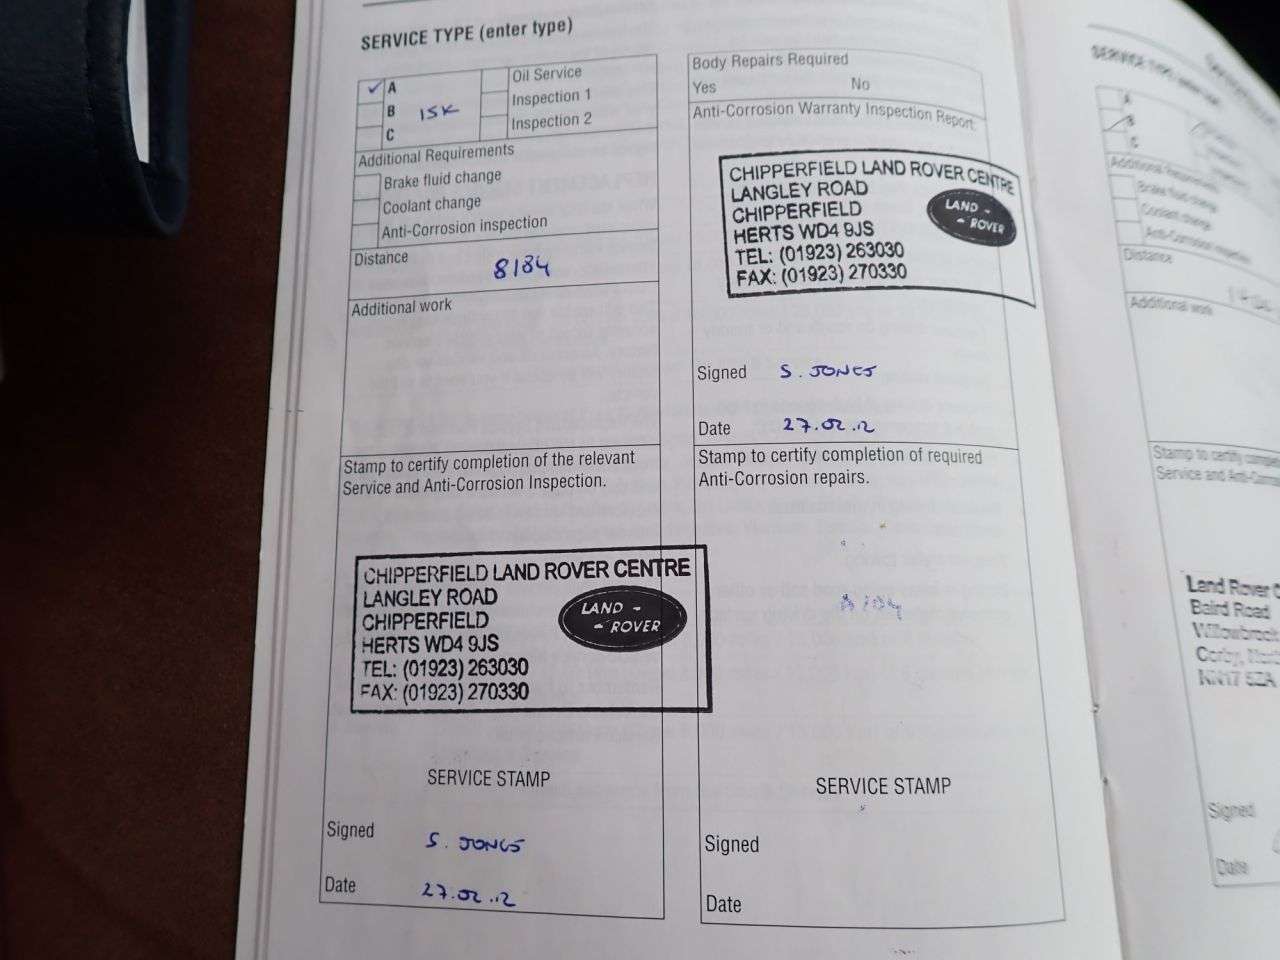 SERVICE TYPE (enter type)
✓ A
B 15K
C
Oil Service
Inspection 1
Inspection 2
Additional Requirements
Brake fluid change
Coolant change
Anti-Corrosion inspection
Distance 8184
Additional work
Stamp to certify completion of the relevant
Service and Anti-Corrosion Inspection.
CHIPPERFIELD LAND ROVER CENTRE
LANGLEY ROAD
CHIPPERFIELD
HERTS WD4 9JS
TEL: (01923) 263030
FAX: (01923) 270330
LAND -
- ROVER
SERVICE STAMP
Signed S. JONES
Date 27.02.12
Body Repairs Required
Yes No
Anti-Corrosion Warranty Inspection Report
CHIPPERFIELD LAND ROVER CENTRE
LANGLEY ROAD
CHIPPERFIELD
HERTS WD4 9JS
TEL: (01923) 263030
FAX: (01923) 270330
LAND -
- ROVER
Signed S. JONES
Date 27.02.12
Stamp to certify completion of required
Anti-Corrosion repairs.
SERVICE STAMP
Signed
Date
SERVICE TYPE
A
B
C
Additional
Brake fluid
Coolant change
Anti-Corrosion
Distance
Additional work
Stamp to certify
Service and
Land Rover
Baird Road
Corby,
NN17 5ZA
Signed
Date